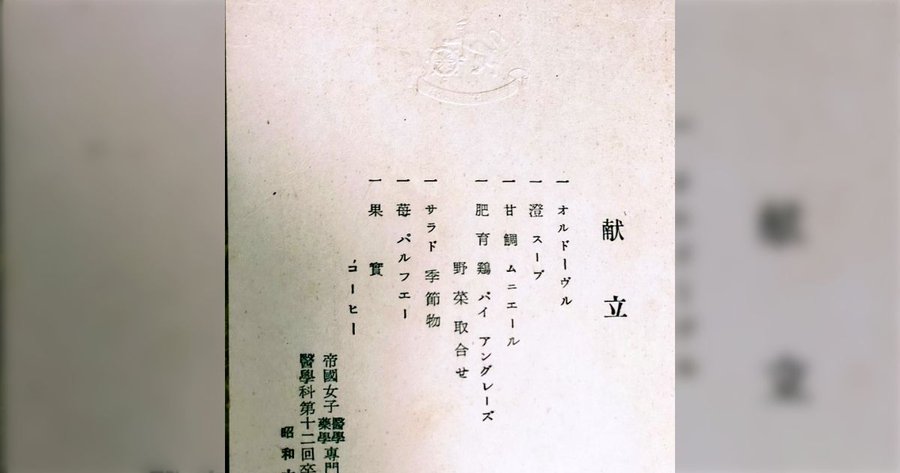 献立
一 オルドーヴル
一 澄スープ
一 甘鯛 ムニエール
一 肥育鶏 パイ アングレーズ
野菜取合せ
一 サラド 季節物
一 苺パルフエー
一 果實
コーヒー
帝國女子醫學藥學専門
醫學科第十二回卒
昭和十